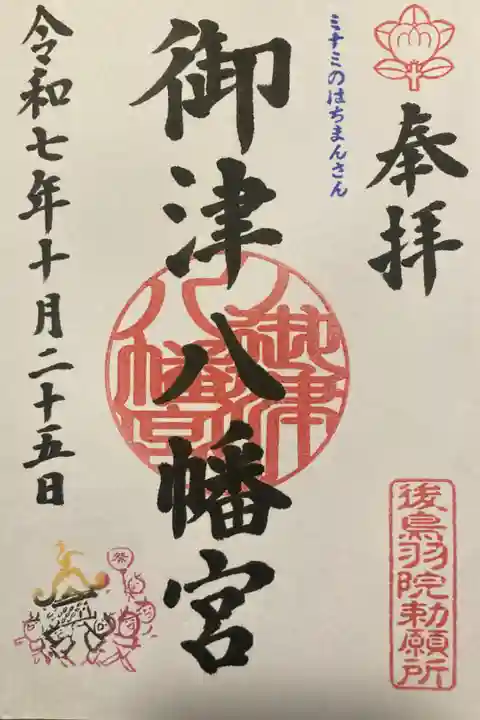 奉拝
ミナミのはちまんさん
御津八幡宮
御津八幡宮
後鳥羽院勅願所
令和七年十月二十五日
祭